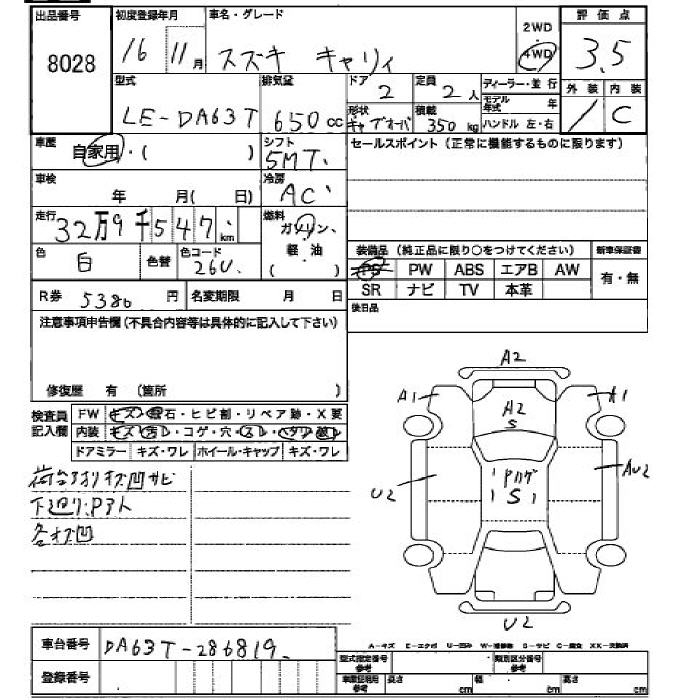 出品番号 初度登録年月 車名・グレード 2WD ・ 4WD 評価点
8028 16 11月 スズキ キャリィ 3.5
型式 排気量 ドア 定員 ディーラー・並行 外装 内装
LE-DA63T 650cc 2 2人 モデル年式 年 / C
形状 積載 ハンドル 左・右
キャブオーバ 350kg
車歴 自家用・( ) シフト 5MT. セールスポイント(正常に機能するものに限ります)
車検 年 月( 日) 冷房 AC
走行 32万9千547km 燃料 ガソリン、
軽・油
( ・ )
色 白 色替 色コード 26U. 装備品(純正品に限り○をつけてください) 新車保証書
PS PW ABS エアB AW 有・無
SR ナビ TV 本革
R券 5380円 名変期限 月 日 後日品
注意事項申告欄(不具合内容等は具体的に記入して下さい)
修復歴 有 (箇所 )
検査員記入欄 FW キズ・飛石・ヒビ割・リペア跡・X要
内装 キズ・汚レ・コゲ・穴・スレ・ヘタリ・破レ
ドアミラー キズ・ワレ ホイール・キャップ キズ・ワレ
荷台アオリキズ凹サビ
下廻りPアト
各キズ凹
A2
A1 A2 A1
S
U2 Pハゲ AU2
S
U2
A-キズ E-エクボ U-凹み W-補修跡 S-サビ C-腐食 XX-交換済
車台番号 DA63T-286819.
登録番号
型式指定番号参考 類別区分番号参考
車庫証明用参考 長さ cm 幅 cm 高さ cm